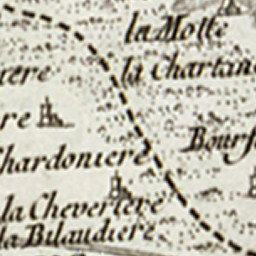 la Motte
la Chartan
iere
re
Chardoniere
Bourf
la Cheveriere
la Bilaudiere